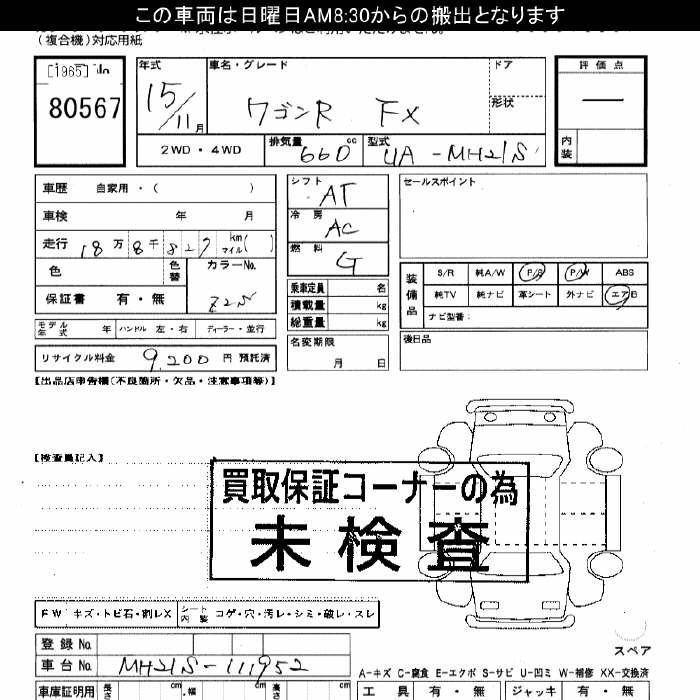 この車両は日曜日AM8:30からの搬出となります
(複合機)対応用紙
[1965]
80567
年式
15/11月
車名・グレード
ワゴンR FX
ドア
形状
評価点
—
内装
2WD・4WD
排気量 660 cc
型式 UA-MH21S
車歴 自家用・( )
車検 年 月
走行 18万8千827 km マイル( )
色
色替
カラーNo.
Z2S
保証書 有・無
モデル年式 年 ハンドル 左・右 ディーラー・並行
リサイクル料金 9,200 円 預託済
シフト AT
冷房 AC
燃料 G
乗車定員 名
積載量 kg
総重量 kg
名変期限
月 日
セールスポイント
装備品
S/R 純A/W P/S P/W ABS
純TV 純ナビ 革シート 外ナビ エアB
ナビ型番:
後日品
【出品店申告欄(不良箇所・欠品・注意事項等)】
【検査員記入】
買取保証コーナーの為
未検査
FW キズ・トビ石・割レX
シート内装 コゲ・穴・汚レ・シミ・破レ・スレ
スペア
登録No.
車台No. MH21S-111952
A-キズ C-腐食 E-エクボ S-サビ U-凹ミ W-補修 XX-交換済
車庫証明用 長さ cm 幅 cm 高さ cm
工具 有・無 ジャッキ 有・無